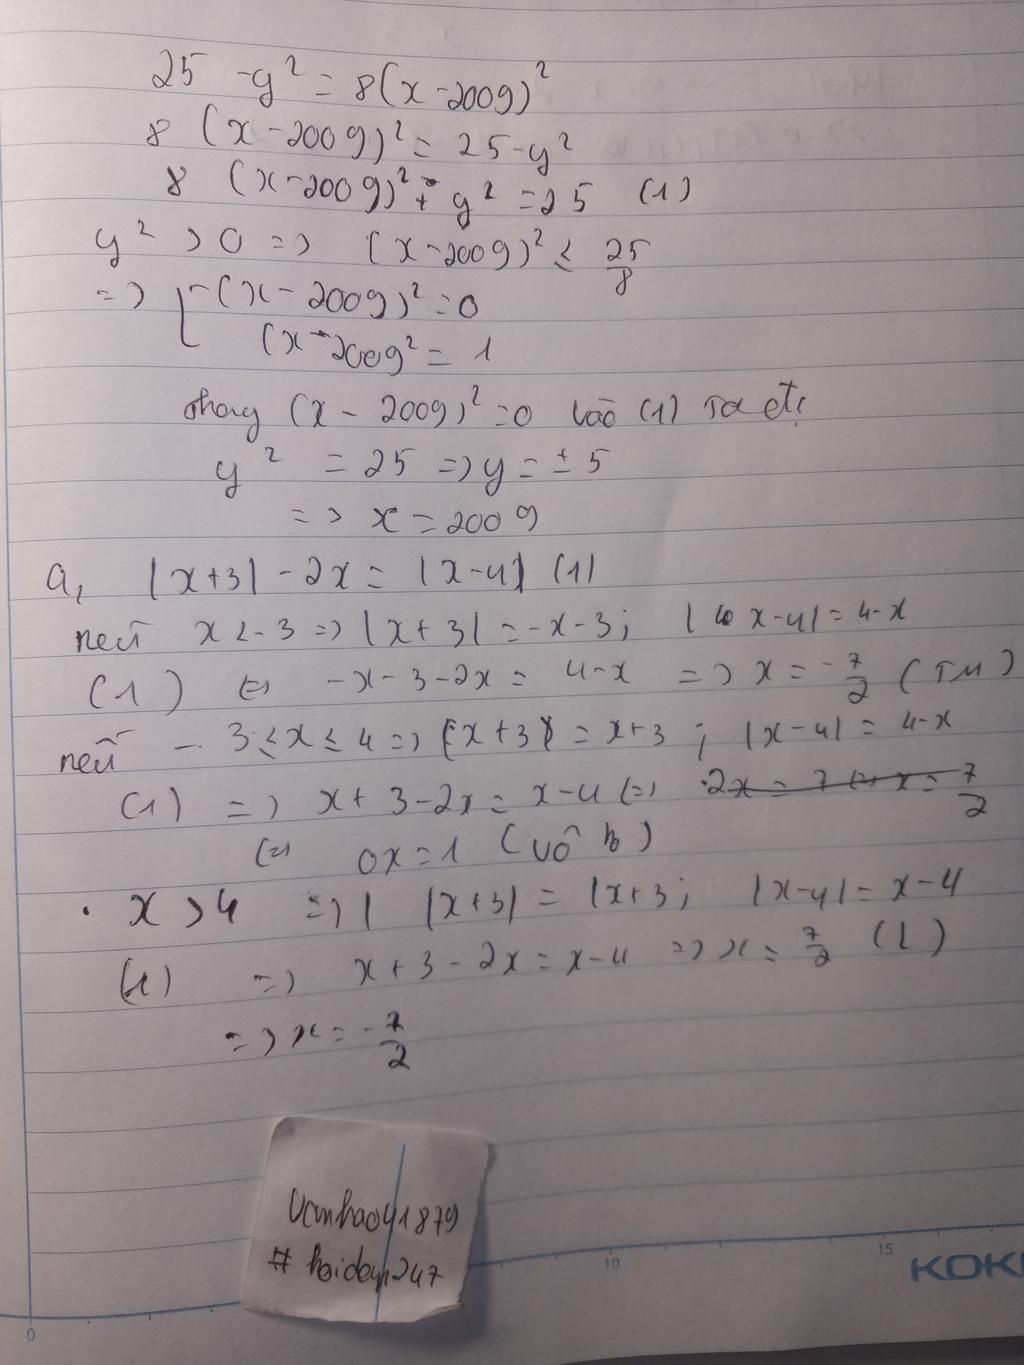 25 - y² = 8(x-2009)²
8 (x-2009)² = 25-y²
8 (x-2009)² + y² = 25 (1)
y² > 0 => (x-2009)² ≤ 25/8
=> [ (x-2009)² = 0
(x-2009² = 1
Thay (x-2009)² = 0 vào (1) Ta
y² = 25 => y = ±5
=> x = 2009
a, |x+3| - 2x = |x-4| (1)
nếu x < -3 => |x+3| = -x-3; | x-4| = 4-x
(1) <=> -x-3-2x = 4-x => x = -7/2 (TM)
nếu -3 ≤ x ≤ 4 => |x+3| = x+3 ; |x-4| = 4-x
(1) => x+3-2x = x-4 <=> 2x = 7 <=> x = 7/2
<=> 0x = 1 (vô )
• x > 4 => | |x+3| = |x+3; |x-4| = x-4
(1) => x+3-2x = x-4 => x = 7/2 (L)
=> x = -7/2
Vanhao41879
# hoidap247
0 10 15
KOK